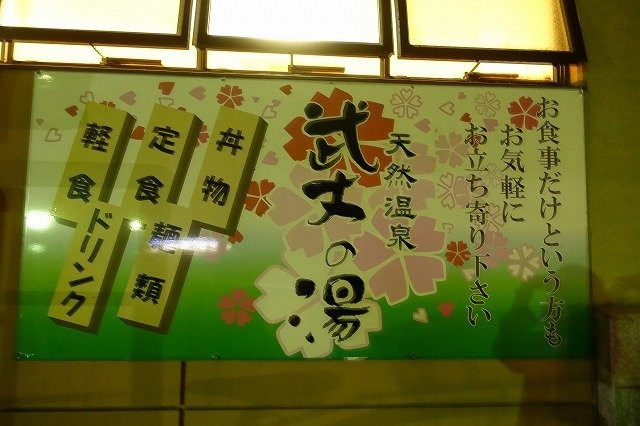 お食事だけという方も
お気軽に
お立ち寄り下さい
天然温泉
武丈の湯
丼物
定食
麺類
軽食
ドリンク